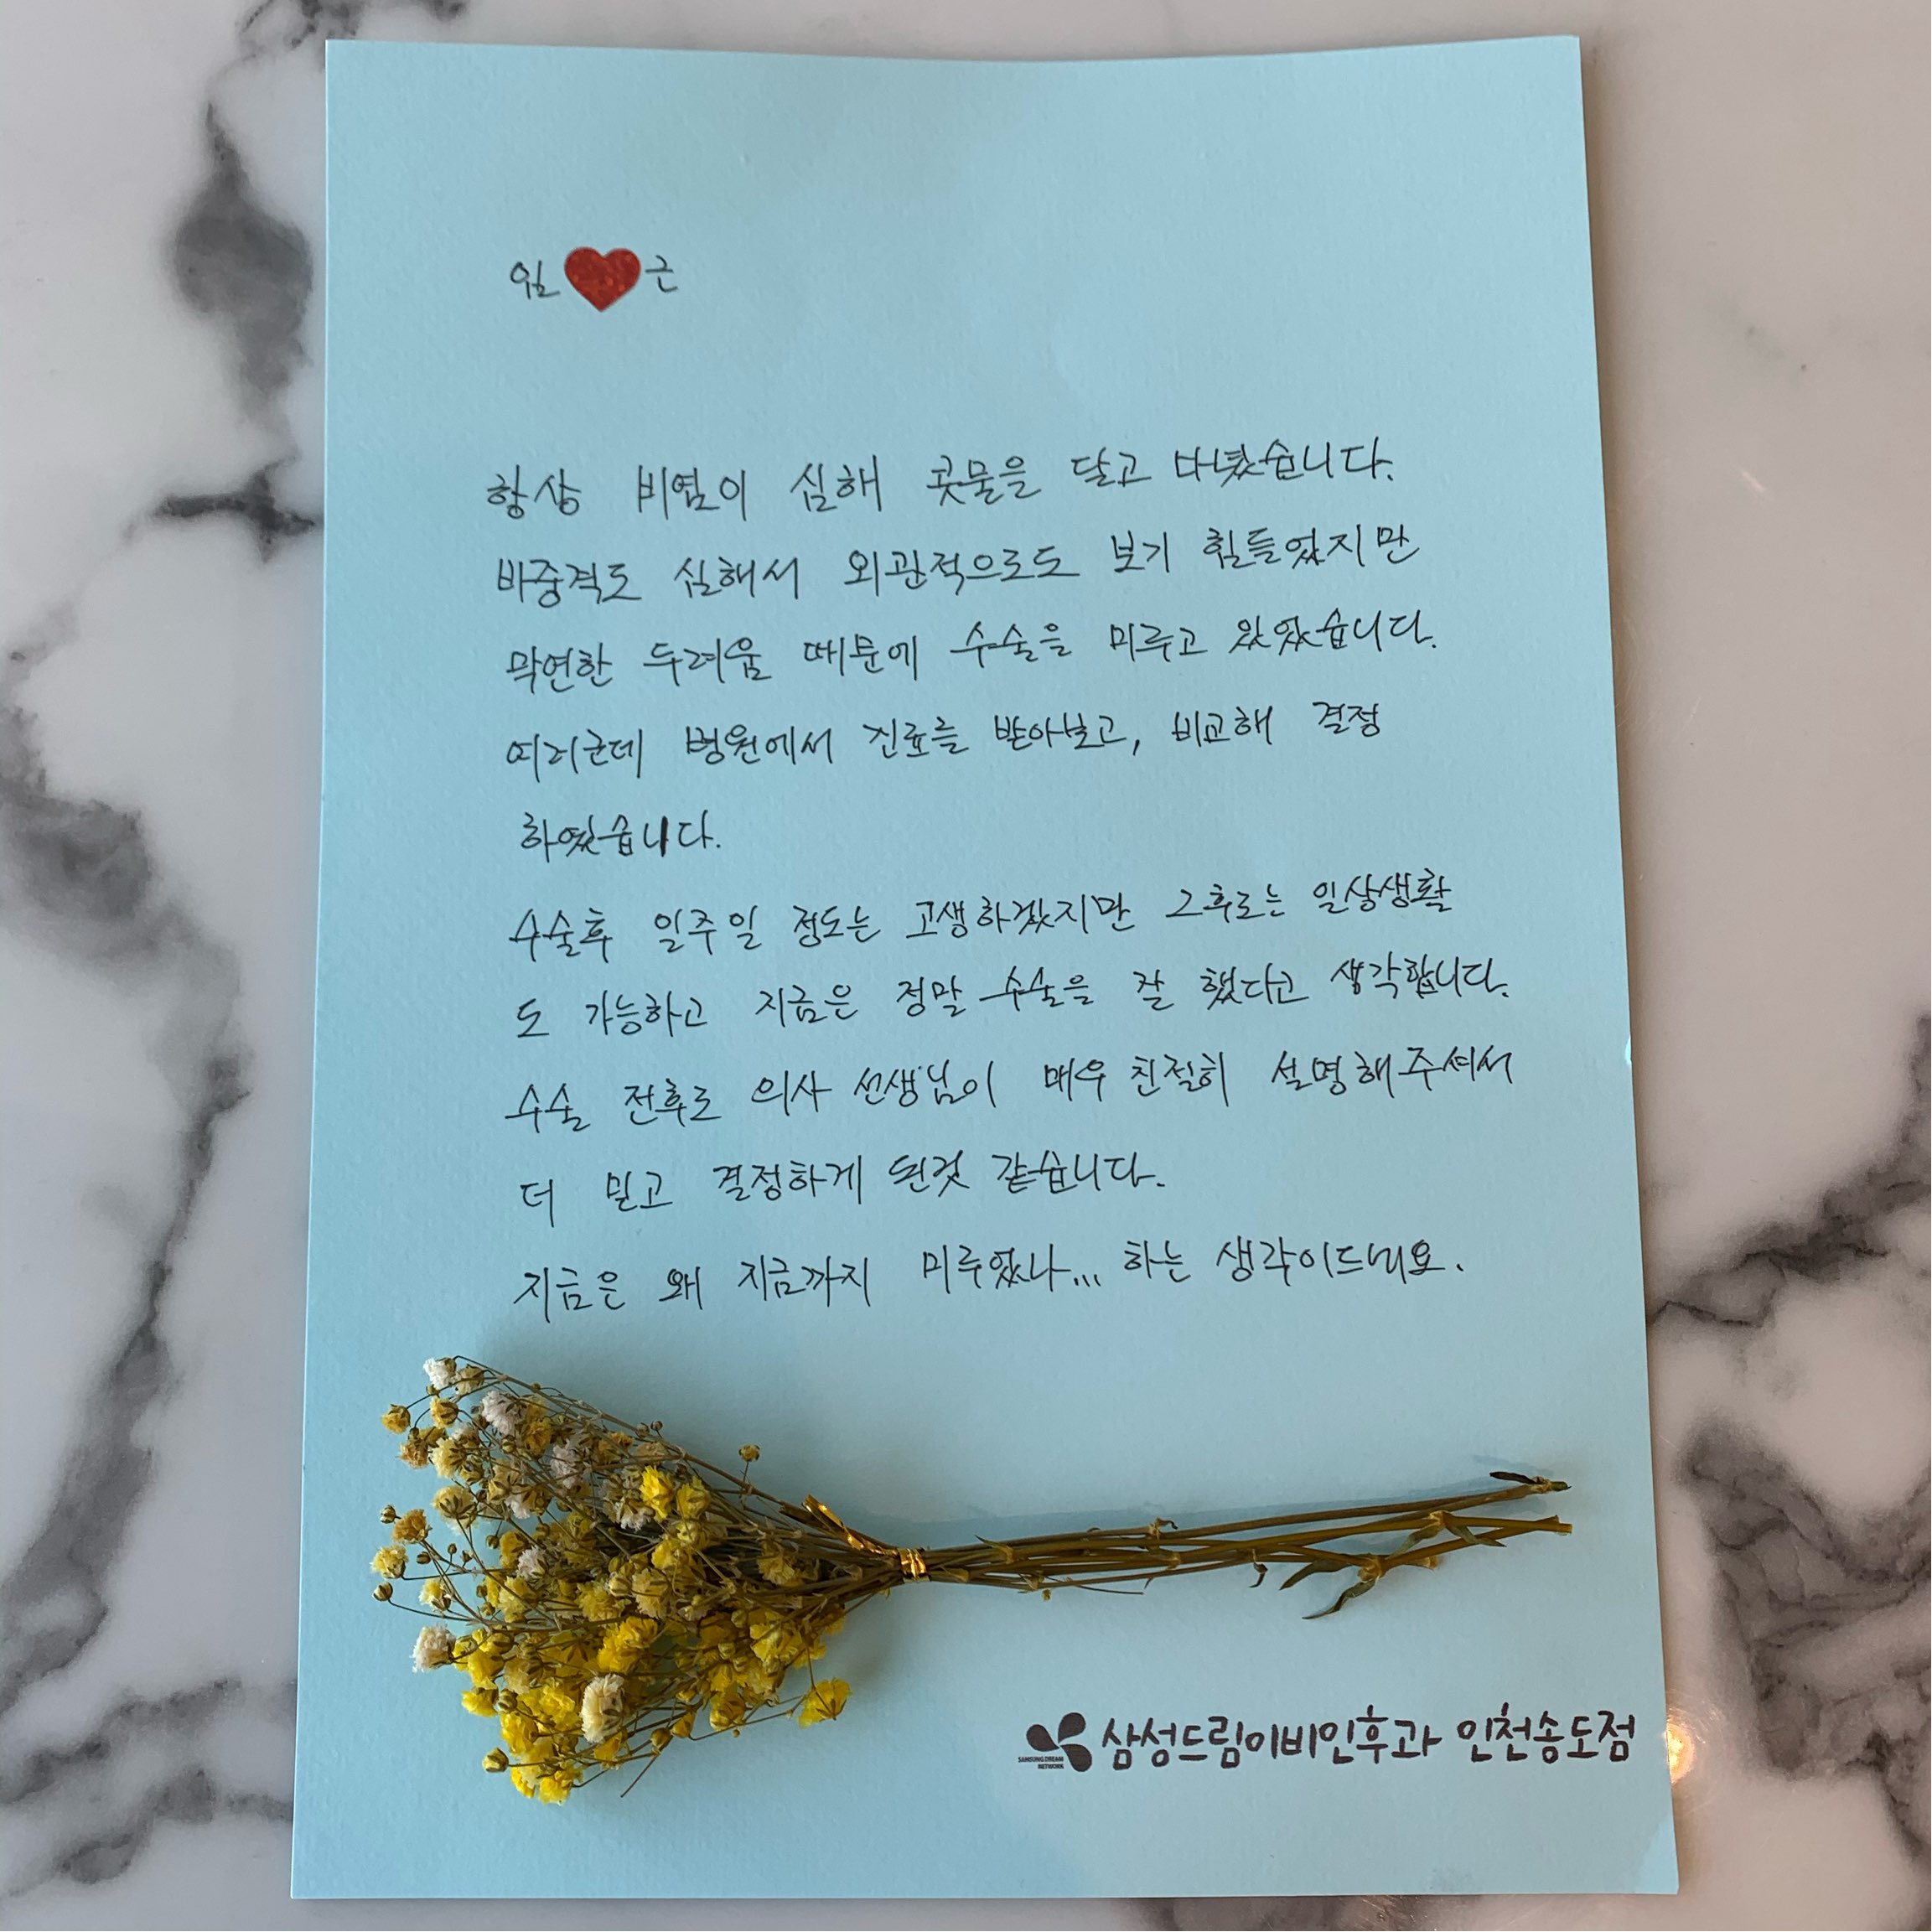 임❤근
항상 비염이 심해 콧물을 달고 다녔습니다.
비중격도 심해서 외관적으로도 보기 힘들었지만
막연한 두려움 때문에 수술을 미루고 있었습니다.
여러군데 병원에서 진료를 받아보고, 비교해 결정
하였습니다.
수술후 일주일 정도는 고생하겠지만 그후로는 일상생활
도 가능하고 지금은 정말 수술을 잘 했다고 생각합니다.
수술 전후로 의사 선생님이 매우 친절히 설명해주셔서
더 믿고 결정하게 된것 같습니다.
지금은 왜 지금까지 미루었나... 하는 생각이드네요.
SAMSUNG DREAM
NETWORK
삼성드림이비인후과 인천송도점